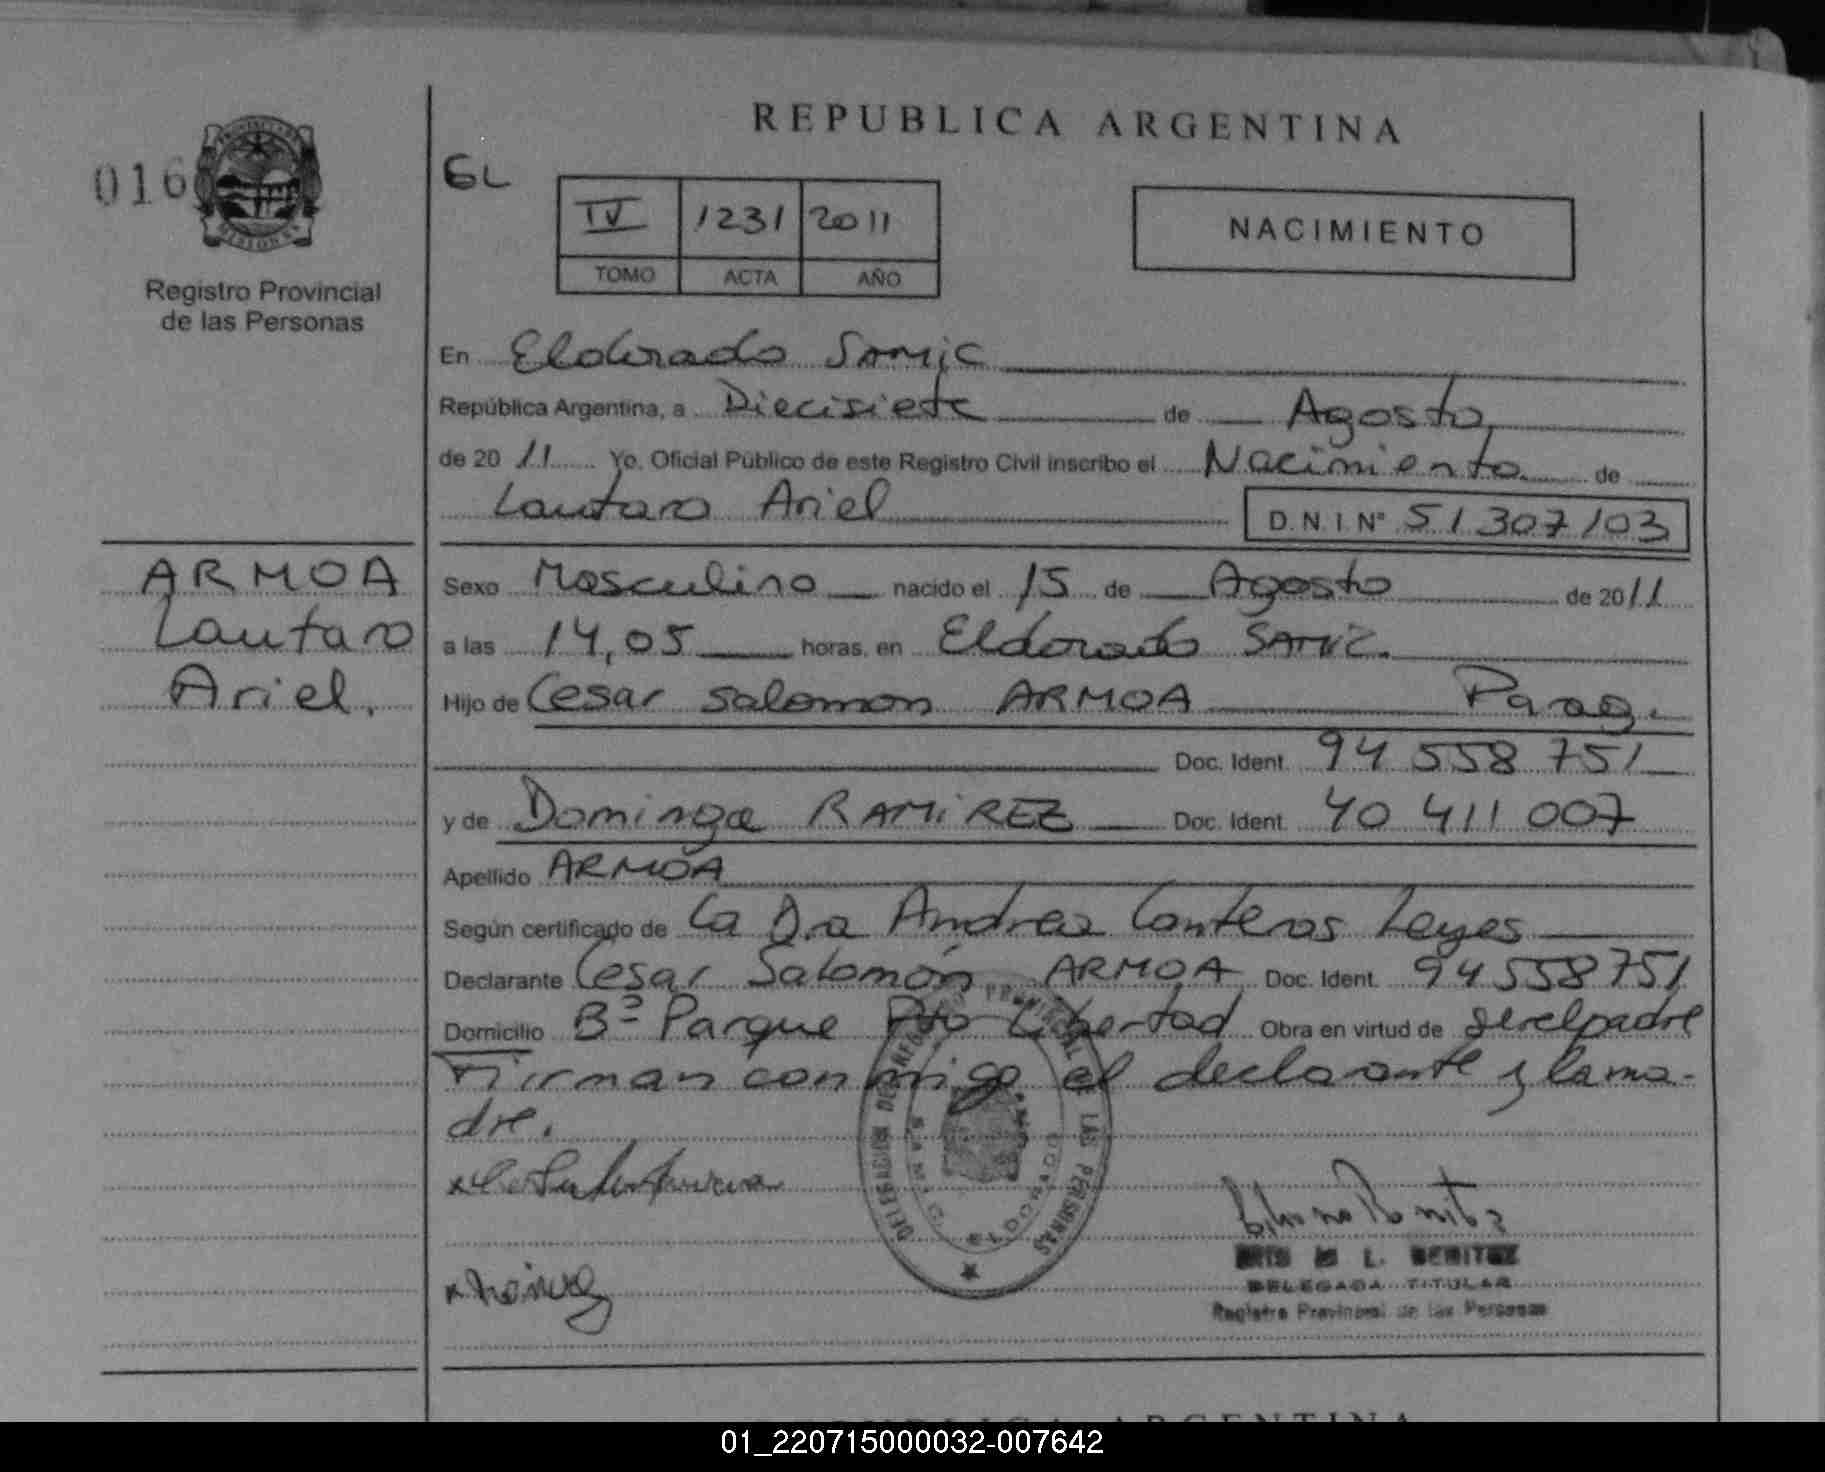 REPUBLICA ARGENTINA
016
PROVINCIA DE
MISIONES
Registro Provincial
de las Personas
GL
IV 1231 2011
TOMO ACTA AÑO
NACIMIENTO
En Eldorado SAMIC
República Argentina, a Diecisiete de Agosto
de 2011 Yo, Oficial Público de este Registro Civil inscribo el Nacimiento de
Lautaro Ariel D.N.I.Nº 51 307 103
ARMOA
Lautaro
Ariel.
Sexo Masculino nacido el 15 de Agosto de 2011
a las 14,05 horas, en Eldorado SAMIC.
Hijo de Cesar Salomon ARMOA Parag.
Doc. Ident. 94 558 751
y de Dominga RAMIREZ Doc. Ident. 40 411 007
Apellido ARMOA
Según certificado de La Dra Andrea Conteras Leyes
Declarante Cesar Salomón ARMOA Doc. Ident. 94558751
Domicilio Bº Parque Pto Libertad Obra en virtud de ser el padre
Firman conmigo el declarante y la ma-
dre.
DELEGACION DEL REGISTRO PROVINCIAL DE LAS PERSONAS
S.A.M.I.C. ELDORADO
L. BENITEZ
DELEGADA TITULAR
Registro Provincial de las Personas
REPUBLICA ARGENTINA
01_220715000032-007642